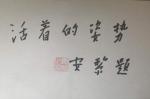 活着的姿势
安篱题